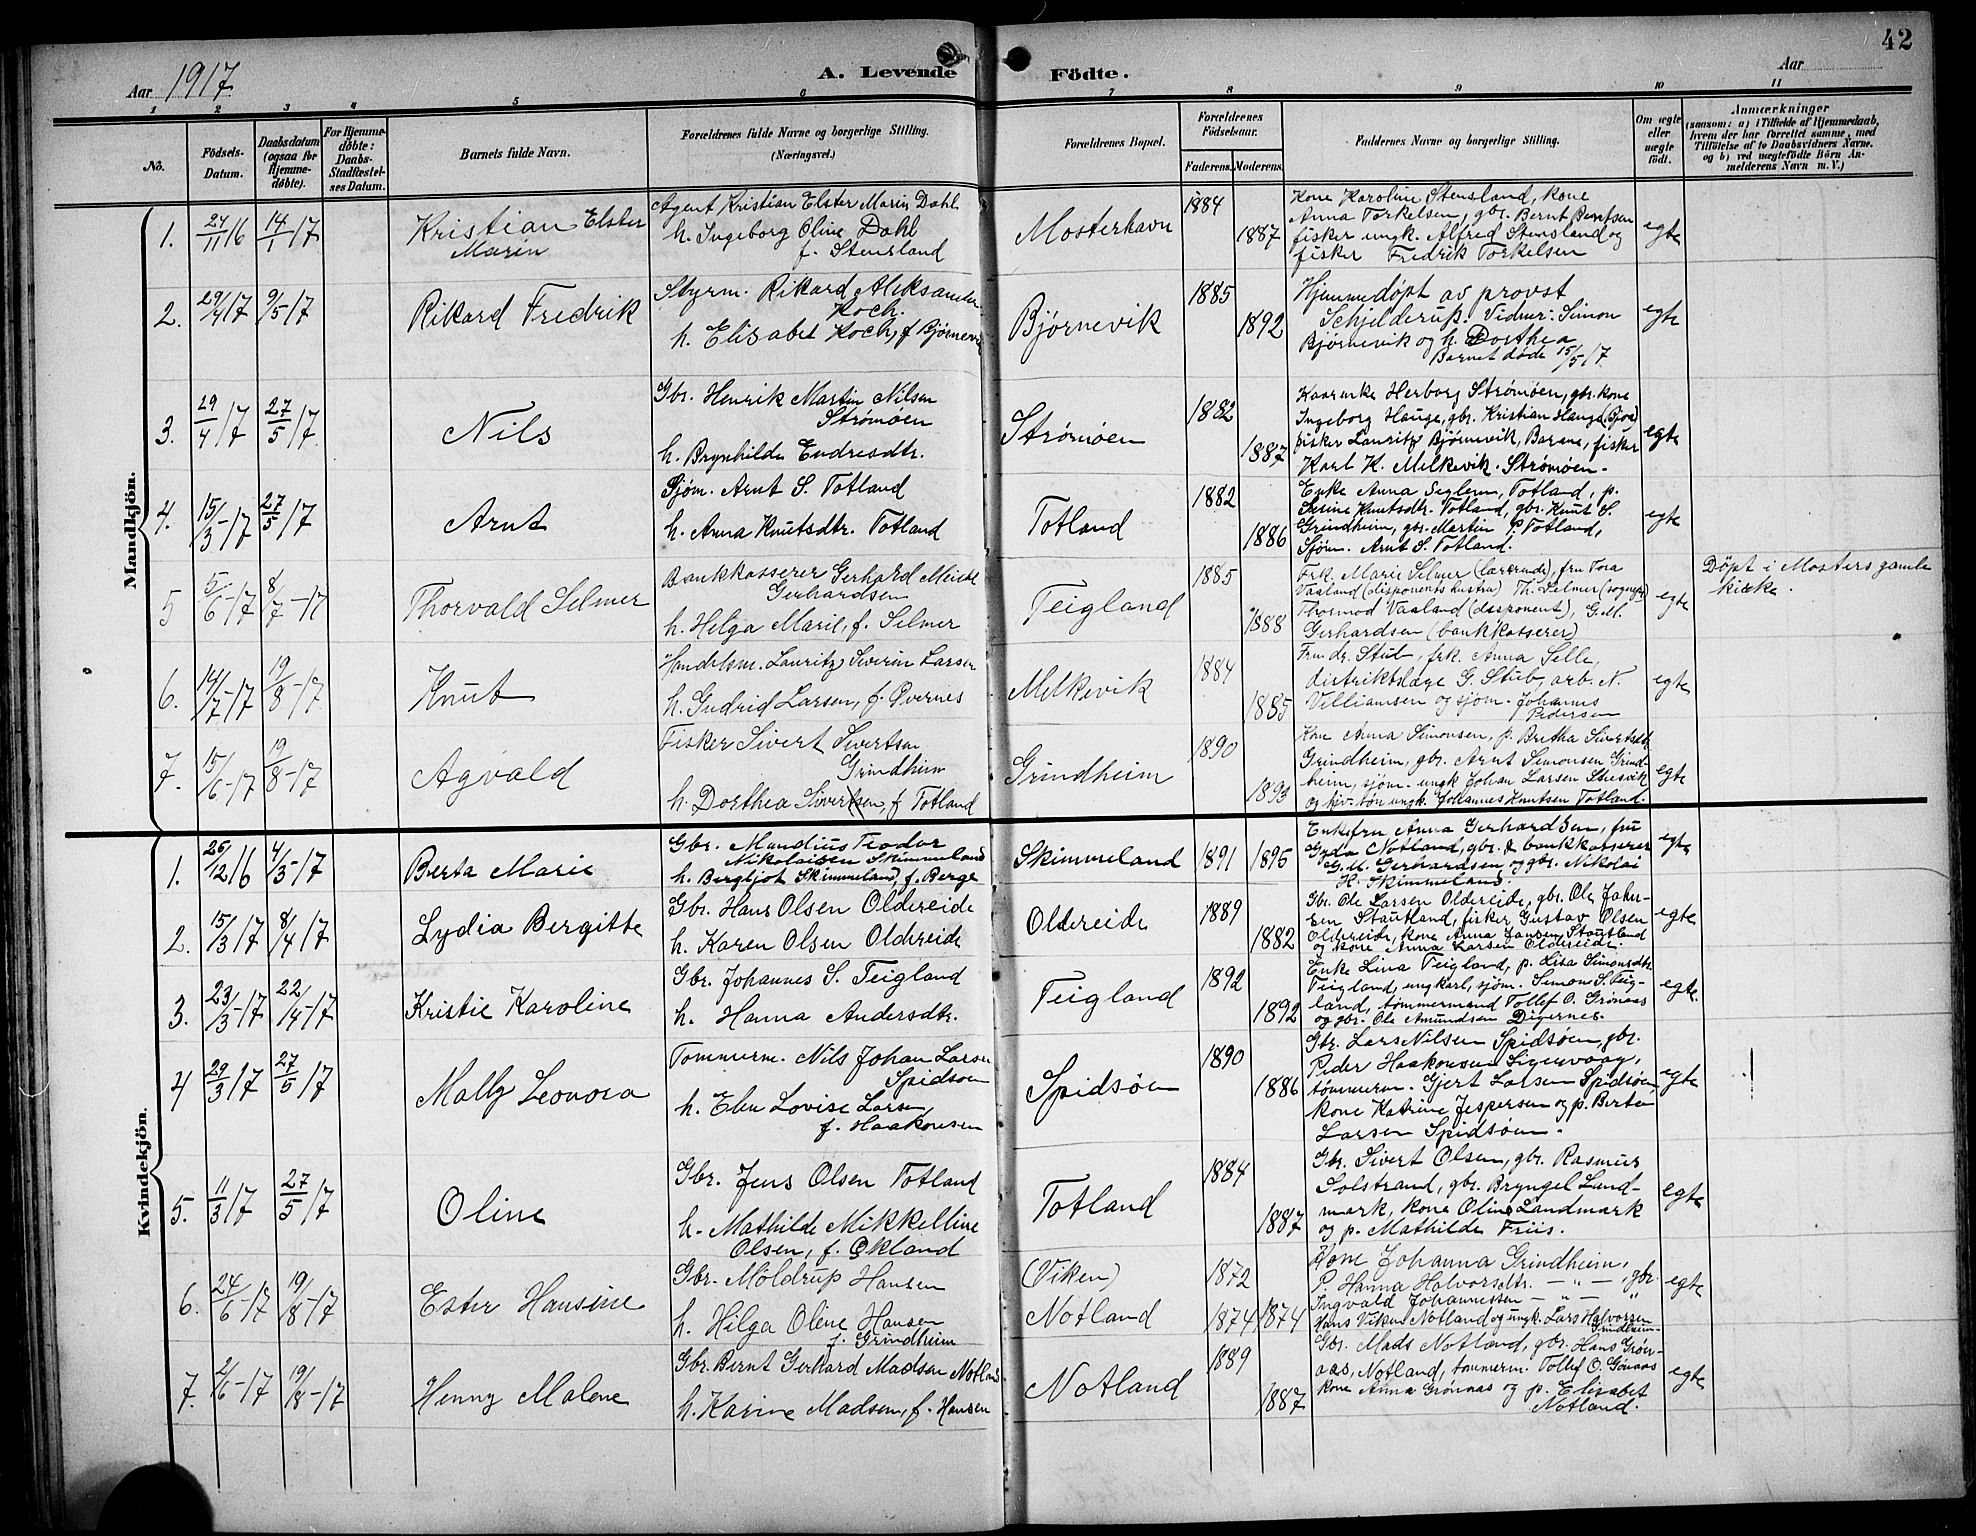 42
Aar 1917
A. Levende Födte.
Aar
1 2 3 4 5 6 7 8 9 10 11
No.
Födsels-
Datum.
Daabsdatum
(ogsaa for
Hjemme-
døbte).
For Hjemme-
døbte:
Daabs-
Stadfæstel-
ses Datum.
Barnets fulde Navn.
Forældrenes fulde Navne og borgerlige Stilling.
(Næringsvei.)
Forældrenes Bopæl.
Forældrenes
Födselsaar.
Faderens. Moderens.
Faddernes Navne og borgerlige Stilling.
Om ægte
eller
uægte
født.
Anmærkninger
(saasom: a) i Tilfælde af Hjemmedaab,
hvem der har forrettet samme, med
Tilföielse af to Daabsvidners Navne.
og b) ved uægtefödte Börn An-
melderens Navn m. V.)
Mandkjön.
1. 27/11 16 14/1 17
Kristian Elster
Marin
Agent Kristian Elster Marin Dahl
h. Ingeborg Oline Dahl
f. Stensland
Mosterhavn
1884
1887
Kone Karoline Stensland, kone
Anna Torkelsen, gbr. Bernt Berntsen
fisker ungk. Alfred Stensland og
fisker Fredrik Torkelsen
egte
2. 29/4 17 9/5 17
Rikard Fredrik
Styrm. Rikard Aleksander
Koch.
h. Elisabet Koch, f Bjørnevik
Bjørnevik
1885
1892
Hjemmedøpt av provst
Schjelderup. Vidner: Simon
Bjørnevik og h. Dorthea
Barnet døde 15/5 17
egte
3. 29/4 17 27/5 17
Nils
Gbr. Henrik Martin Nilsen
Strømøen
h. Brynhilde Endresdtr.
Strømøen
1882
1887
Herborg Strømøen, gbr. kone
Ingeborg Hauge, gbr. Kristian Hauge
fisker Lauritz Bjørnevik, fisker
Karl K. Melkevik. Strømøen.
egte
4. 15/3 17 27/5 17
Arnt
Sjøm. Arnt S. Totland
h. Anna Knutsdtr. Totland
Totland
1882
1886
Enke Anna Totland, p.
Knutsdtr. Totland, gbr. Knut S.
Grindheim, gbr. Martin P. Totland,
Sjøm. Arnt S. Totland.
egte
5 5/6-17 8/7-17
Thorvald Selmer
Bankkasserer Gerhard
Gerhardsen
h. Helga Marie, f. Selmer
Teigland
1885
1888
Frk. Marie Selmer (lærerinde), fru Tora
Vaaland (disponents hustru) Th. Selmer
Thormod Vaaland (disponent), G.M.
Gerhardsen (bankkasserer)
egte
Döpt i Mosters gamle
kirke.
6. 14/7-17 19/8-17
Knut
Handelsm. Lauritz Sverin Larsen
h. Gudrid Larsen, f. Øvernes
Melkevik
1884
1885
Fru dr. Stub, frk. Anna Selle,
distriktslæge G. Stub, arb. N.
Villiamsen og sjøm. Johannes
Pedersen
egte
7. 15/6-17 19/8-17
Agvald
Fisker Sivert Sivertsen
Grindheim
h. Dorthea Sivertsen, f Totland
Grindheim
1890
1893
Kone Anna Simonsen, p. Britha Sivertsdtr.
Grindheim, gbr. Arnt Simonsen Grind-
heim, sjøm. ungk Johan Larsen
og ungk. Johannes Knutsen Totland.
egte
Kvindekjön.
1. 26/12 16 4/3 17
Berta Marie
Gbr. Mandius Teodor
Nikolaisen Skimmeland
h. Bergljot Skimmeland, f. Berge
Skimmeland
1891 1895
Enkefru Anna Gerhardsen, fru
Gyda Notland, gbr. & bankkasserer
G. M. Gerhardsen og gbr. Nikolai
H. Skimmeland
egte
2. 15/3 17 8/4 17
Lydia Bergitte
Gbr. Hans Olsen Oldereide
h. Karen Olsen Oldereide
Oldereide
1889
1882
Gbr. Ole Larsen Oldereide, gbr. Ole John-
sen Stautland, fisker Gustav Olsen
Oldereide, kone Anna Jansen Stautland
og kone Anna Larsen Oldereide.
egte
3. 23/3-17 22/4-17
Kristie Karoline
Gbr. Johannes S. Teigland
h. Hanna Andersdtr.
Teigland
1892
1892
Enke Lina Teigland, p. Lisa Simonsdtr.
Teigland, ungkarl, sjøm. Simon S. Teig-
land, tømmermand Tollef O. Grønaas
og gbr. Ole Amundsen Digernes.
egte.
4 29/3 17 27/5 17
Mally Leonora
Tømmerm. Nils Johan Larsen
Spidsøen
h. Elen Lovise Larsen
f. Haakonsen
Spidsøen
1890
1886
Gbr. Lars Nilsen Spidsøen, gbr.
Peder Haakonsen Siggervaag,
tømmerm. Gjert Larsen Spidsøen
kone Katrine Jespersen og p. Berte
Larsen Spidsøen.
egte
5. 11/3 17 27/5 17
Oline
Gbr. Jens Olsen Totland
h. Mathilde Mikkeline
Olsen, f. Økland
Totland
1884
1887
Gbr. Sivert Olsen, gbr. Rasmus
Solstrand, gbr. Bryngel Land-
mark, kone Oline Landmark
og p. Mathilde Friis.
egte
6. 24/6-17 19/8-17
Ester Hansine
Gbr. Möldrup Hansen
h. Hilga Oline Hansen
f. Grindheim
(Viken)
Notland
1872
1874 1874
Kone Johanna Grindheim,
P. Hanna Halvorsdtr. — " — , gbr.
Ingvald Johannessen — " — "
Hans Viken Notland og ungk. Lars Halvorsen
Grindheim
egte
7. 2/6-17 19/8-17
Henny Malene
Gbr. Bernt Gerhard Madsen Notland
h. Karine Madsen, f. Hansen
Notland
1889
1887
Gbr. Mads Notland, gbr. Hans Grøn-
aas, Notland, tømmerm. Tollef O. Grønaas
kone Anna Grønnas og p. Elisabet
Notland.
egte